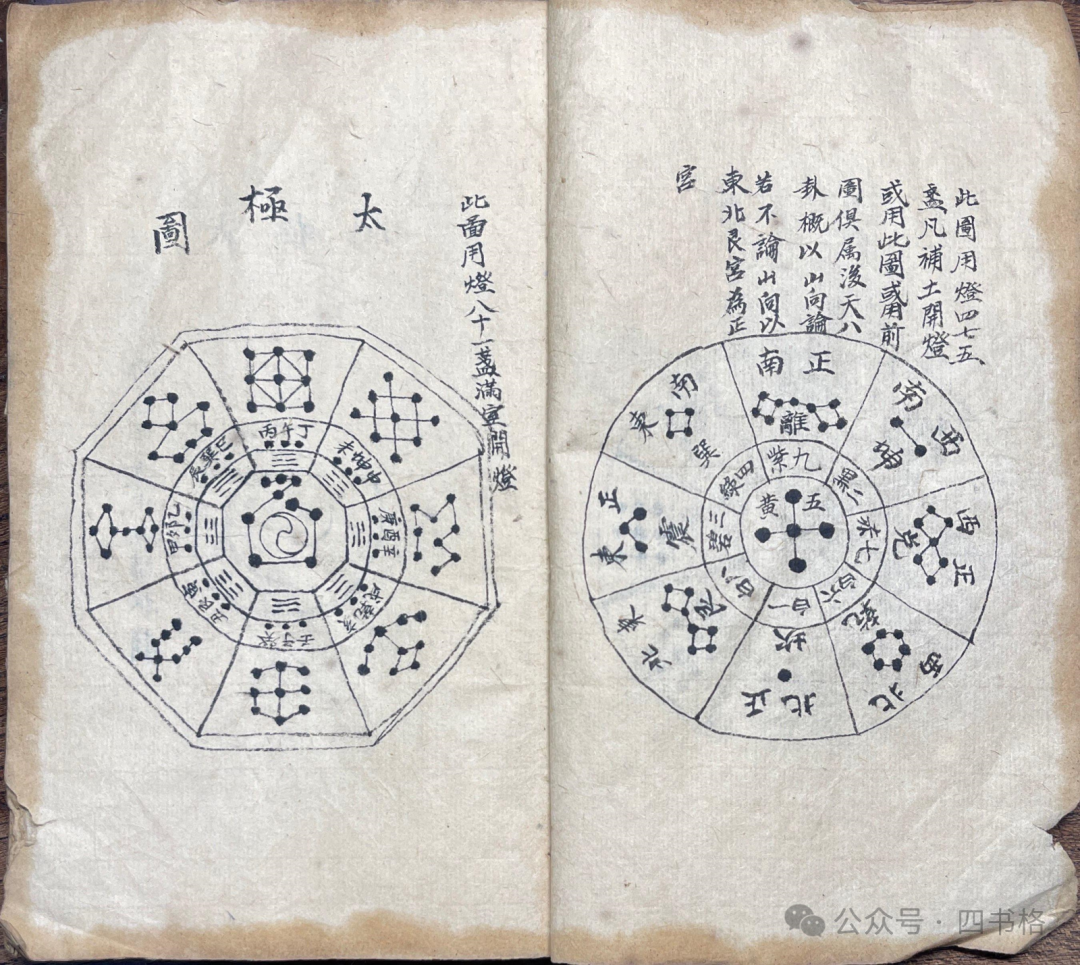 此圖用燈四七五
盞凡補土開燈
或用此圖或用前
圖俱属後天八
卦概以山向論
若不論山向以
東北艮宮為正
宮
正南
離
九紫
西南
坤
二黑
正西
兌
七赤
西北
乾
六白
正北
坎
一白
東北
艮
八白
正東
震
三碧
東南
巽
四綠
五黃
此圖用燈八十一盞滿室開燈
太極圖
丙午丁
未坤申
庚酉辛
戌乾亥
壬子癸
丑艮寅
甲卯乙
辰巽巳
公众号·四书格